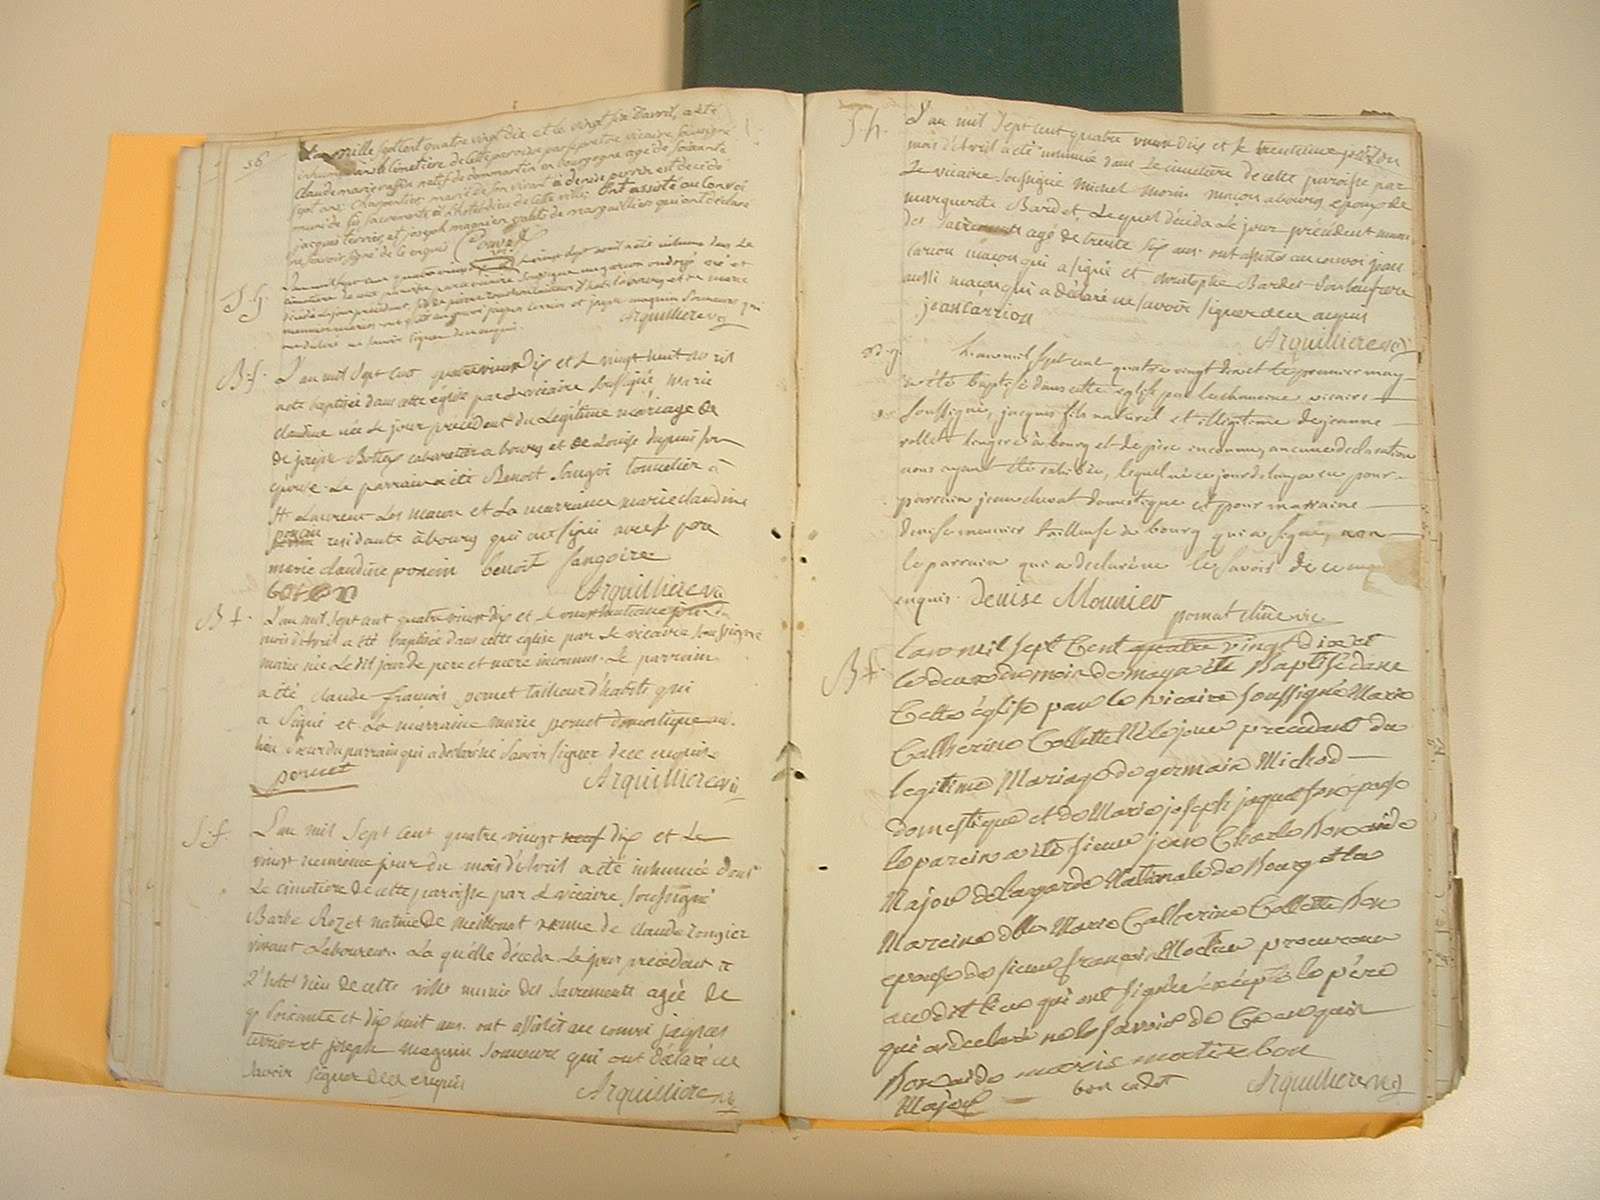 56
L'an mille sept cent quatre vingt dix et le vingt six d'avril, a été
inhumé dans le Cimetière de cette paroisse par le prêtre vicaire soussigné
Claude marie natif de dommartin en bourgogne agé de soixante
sept ans Charpentier mari de son vivant à denise est decedé
muni de ses sacrements à l'hotel dieu de cette ville. Ont assisté au Convoi
jacques terrier, et joseph magnien de marguilliers qui ont déclaré
ne savoir signé de ce enquis
S. g.
L'an mil sept cent quatre vingt dix le vingt sept avril a été inhumé dans le
cimetière de cette paroisse par le vicaire soussigné un garçon ondoyé né et
décédé le jour précédent fils de pierre tailleur d'habits a bourg et de marie
jaques terrier et joseph magnin sonneurs qui
ont declaré ne savoir signer de ce enquis.
Arquilliere vic
B. f.
L'an mil sept cent quatre vingt dix et le vingt huit avril
a été baptisée dans cette église par le vicaire soussigné marie
claudine née le jour précédent du légitime mariage de
de joseph cabaretier a bourg et de Louise dupuis son
epouse. Le parrain a été Benoit Sangoire tonnelier à
St Laurent Les macon et La marraine marie claudine
poncin residante à bourg qui ont signé avec le pere
marie claudine poncin benoit sangoire
Arquilliere vic
B f.
L'an mil sept cent quatre vingt dix et le vingt huitieme jour du
mois d'Avril a été baptisée dans cette eglise par le vicaire soussigné
marie née le dit jour de pere et mere inconnus. Le parrain
a été claude françois pernet tailleur d'habits qui
a signé et La marraine marie pernet domestique au
lieu soeur du parrain qui a declaré ne savoir signer de ce enquise
pernet
Arquilliere vic
S. f.
L'an mil sept cent quatre vingt neuf dix et Le
vingt neuvieme jour du mois d'Avril a été inhumée dans
Le cimetière de cette paroisse par le vicaire soussigné
Barbe Rozet native de meillonat veuve de claude Longier
vivant Laboureur. La quelle décéda Le jour précédent a
L'hotel dieu de cette ville munie des sacrements agée de
soixante et dix huit ans. ont assisté au convoi jaques
terrier et joseph magnin sonneurs qui ont déclaré ne
savoir signer de ce enquis
Arquilliere vic
S. h.
L'an mil sept cent quatre vingt dix et le trentieme jour du
mois d'Avril a été inhumé dans Le cimetiere de cette paroisse par
Le vicaire soussigné michel morin maçon a bourg epoux de
marguerite Bardet, Lequel décéda Le jour précédent muni
des sacrements agé de trente six ans. ont assisté au convoi jean
carrion maçon qui a signé et christophe Bardet son beaufrere
aussi maçon qui a déclaré ne savoir signer de ce enquis
jean Carrion
Arquilliere vic
B. g.
L'an mil sept cent quatre vingt dix et le premier may
a été baptisé dans cette eglise par le chanoine vicaire
soussigné, jacques fils naturel et illégitime de jeanne
rollet lingere à bourg et de père inconnu, aucune declaration
nous ayant été exhibée, lequel né ce jourd'huy a eu pour
parrain jean domestique et pour marraine
denise mounier tailleuse de bourg qui a signé, non
le parrain qui a declaré ne le savoir de ce
enquis. Denise Mounier
B f.
L'an mil sept Cent quatre vingt dix et
le deux du mois de may a été Baptisé dans
Cette église par le Vicaire soussigné Marie
Catherine Collette Né le jour precedant du
legitime Mariage de germain Michod
domestique et de Marie joseph epouse
le parein a été sieur jean Charle Bonardo
Major de la garde Nationale de Bourg et la
Mareine dlle Marie Catherine Collette Bon
epouse de sieur françois Moctier procureur
au dit lieu qui ont signée éxcépté le père
qui a declaré ne le savoir de Ce enquis
Bonardo
Major
bon cadet
Arquilliere vic